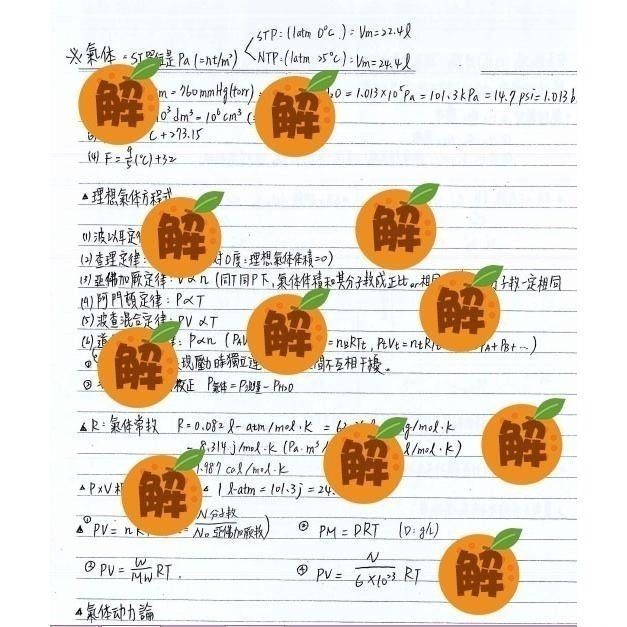 STP:(1atm 0°C):Vm=22.4l
※氣体 = SI單位是Pa(=nt/m²)
NTP:(1atm 25°C):Vm=24.4l
解 m=760mmHg(torr) = 解 2O = 1.013×10⁵Pa = 101.3kPa = 14.7psi = 1.013b
10³dm³ = 10⁶cm³ (
C+273.15
(4) F=9/5(°C)+32
▲理想氣体方程式
解 解
(1)波以耳定
(2)查理定律: 0度:理想氣体体積=0)
(3)亞佛加厥定律:V∝n (同T同P下,氣体体積和其分子數成正比 or 相同 解 子數一定相同
(4)阿門頓定律:P∝T
(5)波查混合定律:PV∝T 解
(6)道 律:P∝n (PAV =nBRTt, PtVt=ntRT PA+PB+…)
① 解 現 時獨立 間不互相干擾。
② 校正 P氣体=P測量-PH2O
▲R:氣体常數 R=0.082 l-atm/mol·K = 62 g/mol·K
=8.314 j/mol·K (Pa·m³/ 解 l/mol·K) 解
1.987 cal/mol·K
▲P×V 解 1 l-atm=101.3j=24.
▲①PV=nR N分子數/N0亞佛加厥數) ②PM=DRT (D:g/L)
③PV=W/MW RT. ④PV=N/6×10²³ RT 解
▲氣体动力論